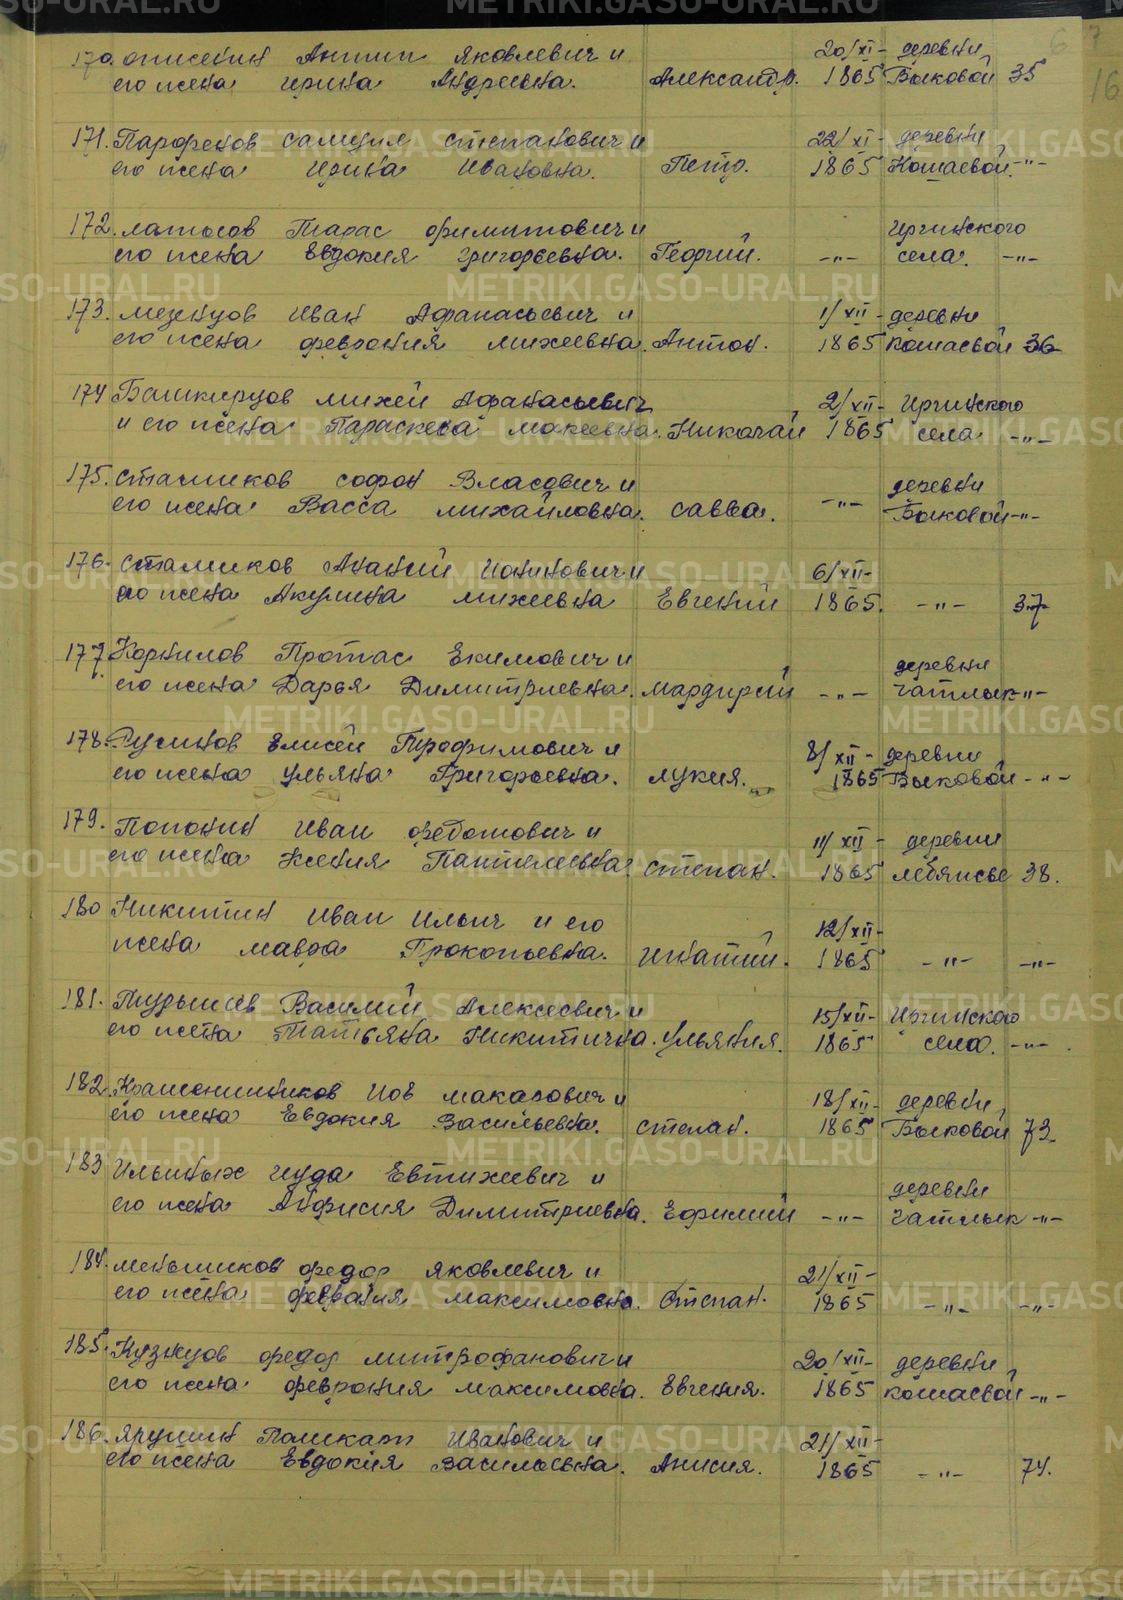 6 7
16
170. Онисекин Антип Яковлевич и 20/XI- деревни
его жена Ирина Андреевна. Александр. 1865 Быковой 35
171. Парфенов Самуил Степанович и 22/XI- деревни
его жена Ирина Ивановна. Петр. 1865 Кошаевой. -"-
172. Латысов Тарас Филиппович и Иргинского
его жена Евдокия Григорьевна. Георгий. -"- села. -"-
173. Мезенцов Иван Афанасьевич и 1/XII- деревни
его жена Феврония Михеевна. Антон. 1865 Кошаевой 36
174 Башкирцов Михей Афанасьевич 2/XII- Иргинского
и его жена Параскева Макеевна. Николай 1865 села -"-
175. Стамиков Софон Власович и деревни
его жена Васса Михайловна. Савва. -"- Быковой -"-
176. Стамиков Ананий Ионинович и 6/XII-
его жена Акулина Михеевна Евгений 1865. -"- 37
177. Корнилов Протас Екимович и деревни
его жена Дарья Димитриевна. Мардирий -"- Чатлык -"-
178. Русинов Елисей Трофимович и 8/XII- деревни
его жена Ульяна Григорьевна. Лукия. 1865 Быковой -"-
179. Попонин Иван Федотович и 11/XII- деревни
его жена Ксения Пантелеевна. Степан. 1865 Лебяжье 38.
180 Никитин Иван Ильич и его 12/XII-
жена Мавра Прокопьевна. Игнатий. 1865 -"- -"-
181. Тудышев Василий Алексеевич и 15/XII- Иргинского
его жена Татьяна Никитична. Ульяния. 1865 села. -"-
182. Крашенинников Иов Макарович и 18/XII- деревни
его жена Евдокия Васильевна. Степан. 1865 Быковой 73
183 Ильиных Иуда Евтихеевич и деревни
его жена Анфисия Димитриевна. Ефимий -"- Чатлык -"-
184. Меньшиков Федор Яковлевич и 21/XII-
его жена Феврания Максимовна. Степан. 1865 -"- -"-
185. Кузнецов Федор Митрофанович и 20/XII- деревни
его жена Феврония Максимовна. Евгения. 1865 Кошаевой -"-
186. Ярушин Поликарп Иванович и 21/XII-
его жена Евдокия Васильевна. Анисия. 1865 -"- 74.
METRIKI.GASO-URAL.RU